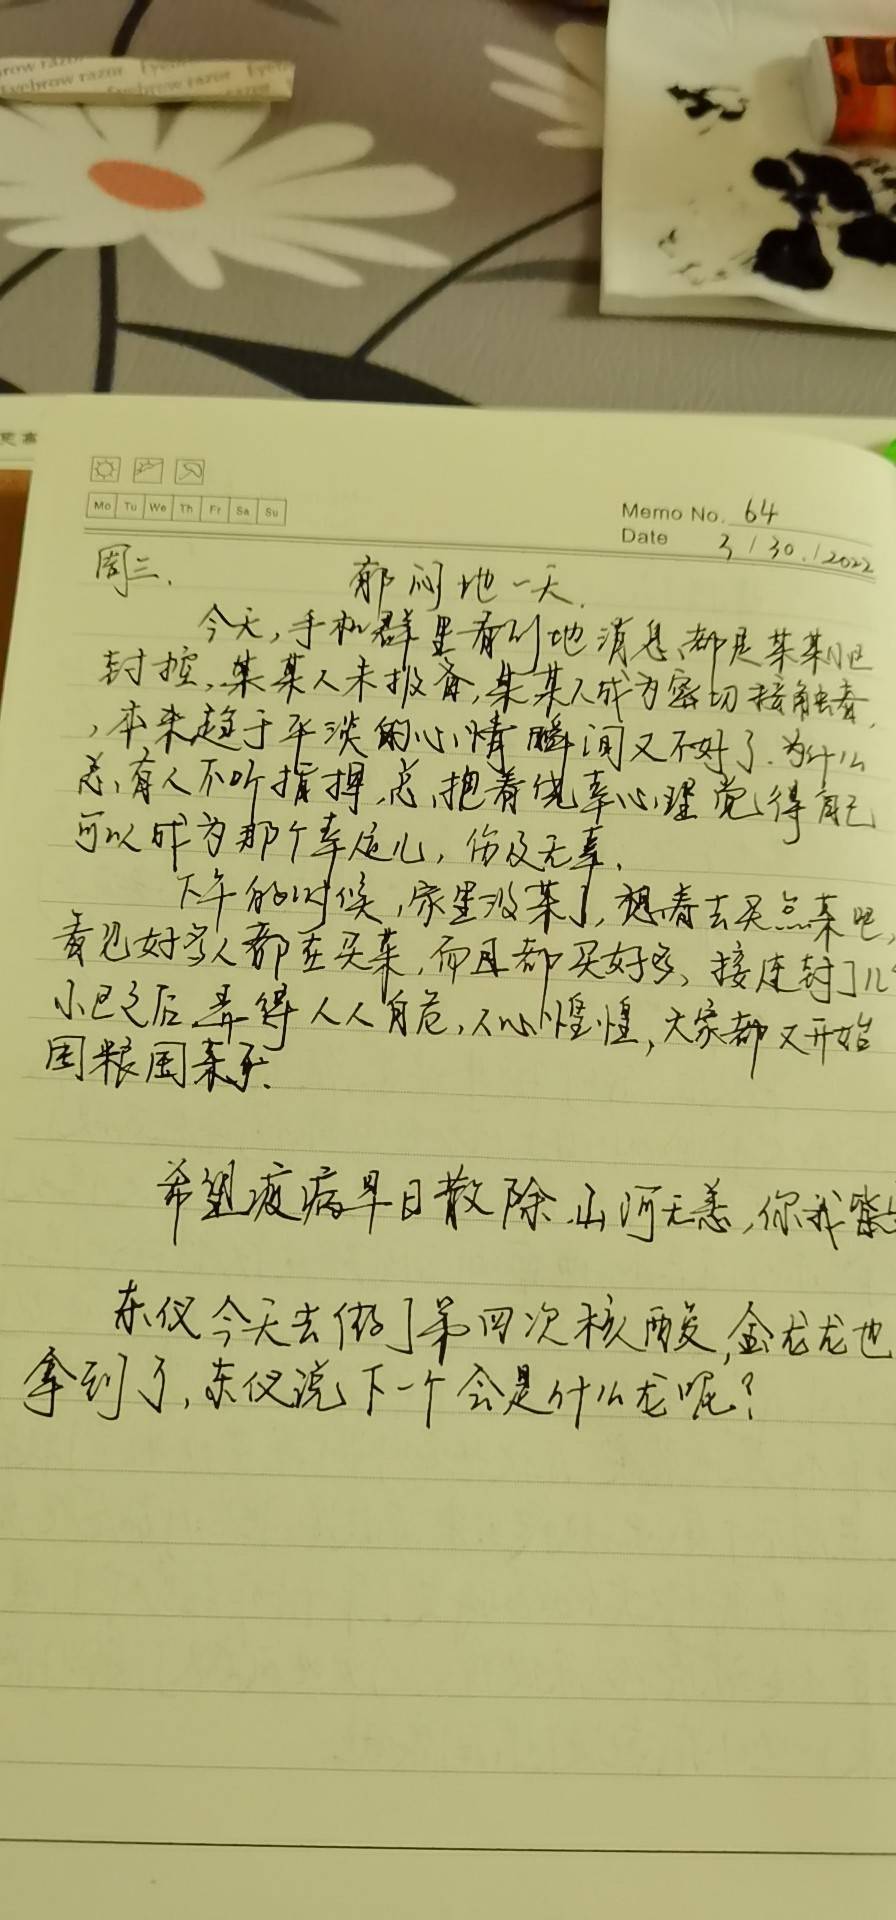 Eyebrow razor Eyebrow razor
Mo Tu We Th Fr Sa Su
Memo No. 64
Date 3 / 30. / 2022
周三. 郁闷地一天.
今天,手机群里看到地消息,都是某某小区
封控,某某人未报备,某某人成为密切接触者,
,本来趋于平淡的心情瞬间又不好了.为什么
总有人不听指挥,总抱着侥幸心理觉得自己
可以成为那个幸运儿,伤及无辜.
下午的时候,家里没菜了,想着去买点菜吧,
看见好多人都在买菜,而且都买好多,接连封了几个
小区之后,弄得人人自危,人心惶惶,大家都又开始
囤粮囤菜了.
希望疫病早日散除,山河无恙,你我皆
东仪今天去做了第四次核酸,金龙龙也
拿到了,东仪说下一个会是什么龙呢?